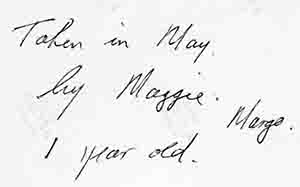 Taken in May.
by Maggie.
Margo.
1 year old.